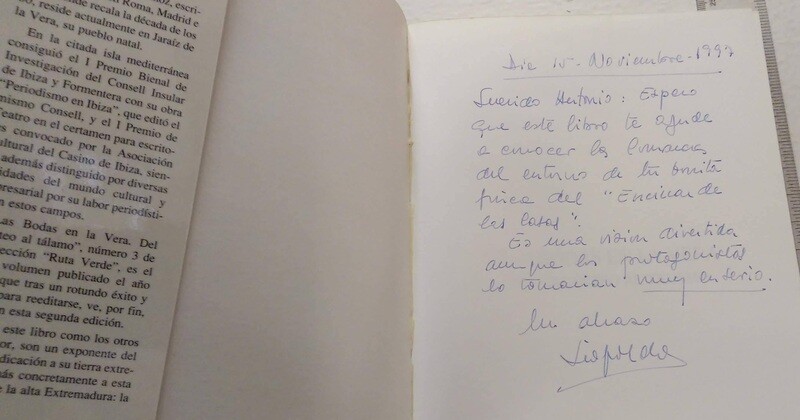 n Roma, Madrid e
nde recala la década de los
o, reside actualmente en Jaraíz de
la Vera, su pueblo natal.
En la citada isla mediterránea
consiguió el I Premio Bienal de
Investigación del Consell Insular
de Ibiza y Formentera con su obra
"Periodismo en Ibiza", que editó el
nismo Consell, y el I Premio de
Teatro en el certamen para escrito-
es convocado por la Asociación
ultural del Casino de Ibiza, sien-
además distinguido por diversas
idades del mundo cultural y
presarial por su labor periodísti-
en estos campos.
as Bodas en la Vera. Del
teo al tálamo", número 3 de
ección "Ruta Verde", es el
volumen publicado el año
que tras un rotundo éxito y
para reeditarse, ve, por fin,
n esta segunda edición.
este libro como los otros
or, son un exponente del
dicación a su tierra extre-
más concretamente a esta
e la alta Extremadura: la
Día 15 - Noviembre - 1997
Querido Antonio: Espero
que este libro te ayude
a conocer las
del entorno de tu bonita
finca del "Encinar de
las Casas".
Es una visión divertida
aunque los protagonistas
lo tomaran muy en serio.
Un abrazo